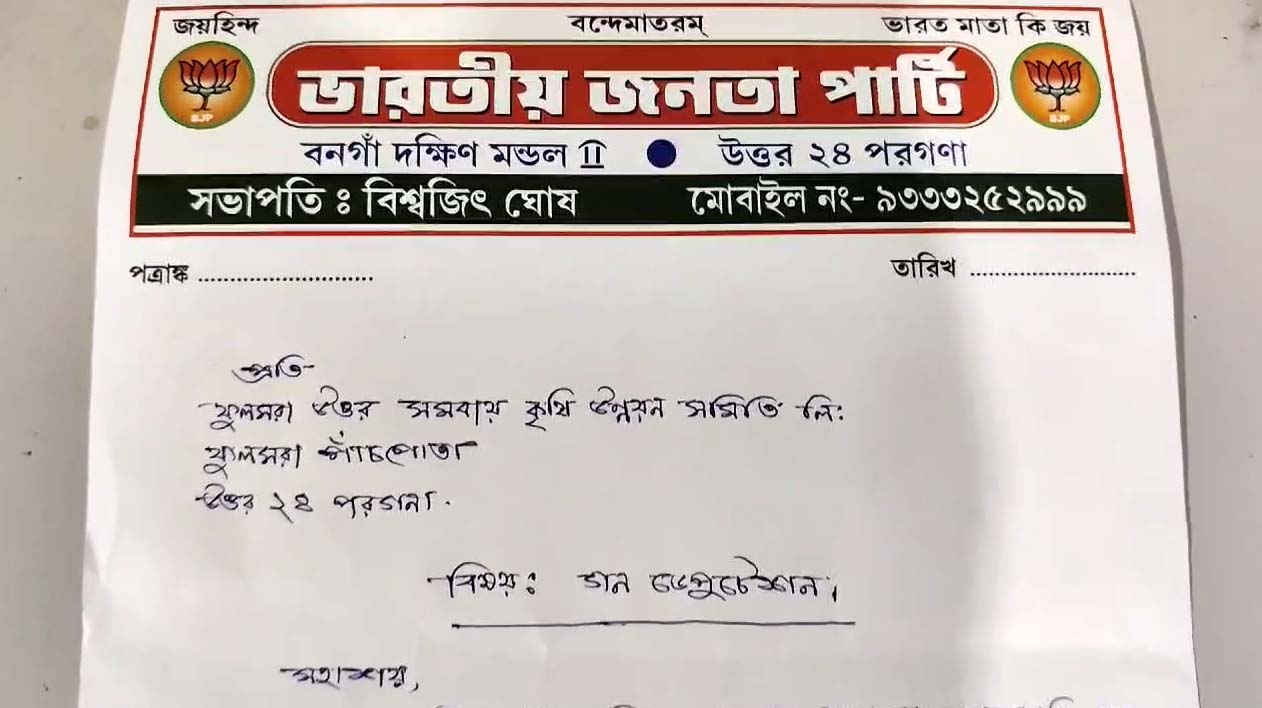 জয়হিন্দ বন্দেমাতরম্ ভারত মাতা কি জয়
BJP ভারতীয় জনতা পার্টি BJP
বনগাঁ দক্ষিণ মন্ডল II ● উত্তর ২৪ পরগণা
সভাপতি ঃ বিশ্বজিৎ ঘোষ মোবাইল নং- ৯৩৩৩২৫২৯৯৯
পত্রাঙ্ক ........................... তারিখ ..........................
প্রতি-
ফুলসরা উত্তর সমবায় কৃষি উন্নয়ন সমিতি লিঃ
ফুলসরা পাঁচপোতা
উত্তর ২৪ পরগনা.
বিষয়ঃ গন ডেপুটেশান।
মহাশয়,